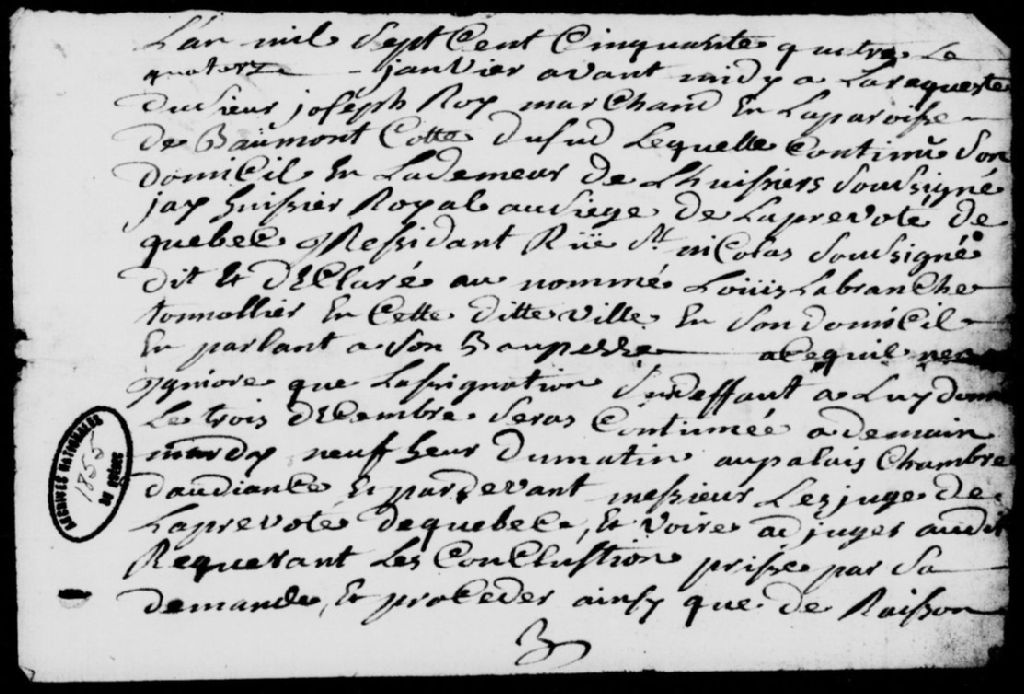 L'an mil Sept Cent Cinquante quatre Le
quatorze janvier avant midy a La requeste
du Sieur joseph Roy marchand En Laparoisse
de Baümont Cotte du Sud Lequelle Continüe Son
domicil En Lademeur de Lhuissiers Soussigné
jay huissier Royal au Siege de Laprevoté de
quebec Ressidant Rüe St nicolas Soussigné
dit Et dEClaré au nommé Loüis Labranche
tonnellier En Cette ditte ville En Son domicil
En parlant a Son Baupere a Cequil nen
Jgniore que Lassignation Sur deffaut a Luy donné
Le trois dECembre Seras Continuée a demain
mardy neuf heur Dumatin au palais Chambre
daudiance Et pardevant messieur Lez juge de
Laprevoté dequebec, Et Voire adjuger audit
Requerant Les ConClustion prisse par Sa
demande, Et proceder ainsy que de Raisson
ARCHIVES NATIONALES
1855
DE QUÉBEC